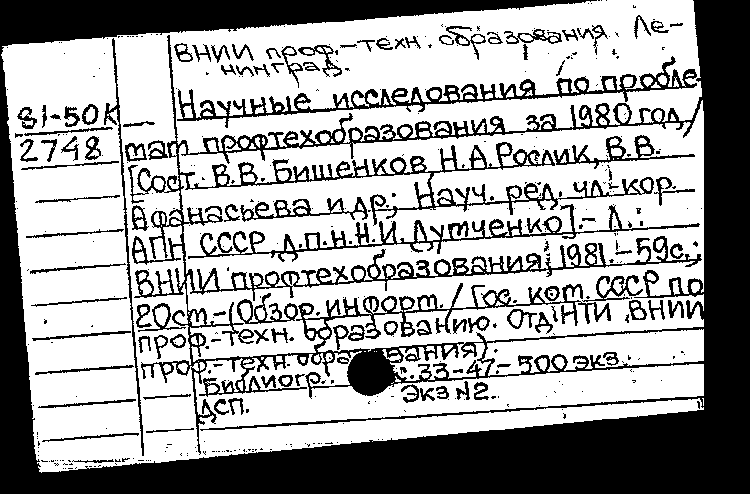 ВНИИ проф.-техн. образования. Ле-
нинград.
81-50К — Научные исследования по пробле
2748 мам профтехобразования за 1980 год /
[Сост. В.В. Бишенков, Н.А. Рослик, В.В.
Афанасьева и др.; Науч. ред. чл.-кор.
АПН СССР, д.п.н. Н.И. Думченко]. - Л.:
ВНИИ профтехобразования, 1981. - 59с.;
20см. - (Обзор. информ. / Гос. ком. СССР по
проф.-техн. образованию. Отд. НТИ ВНИИ
проф.-техн. образования).
Библиогр.: с. 33-47. - 500 экз.
ДСП. Экз №2.